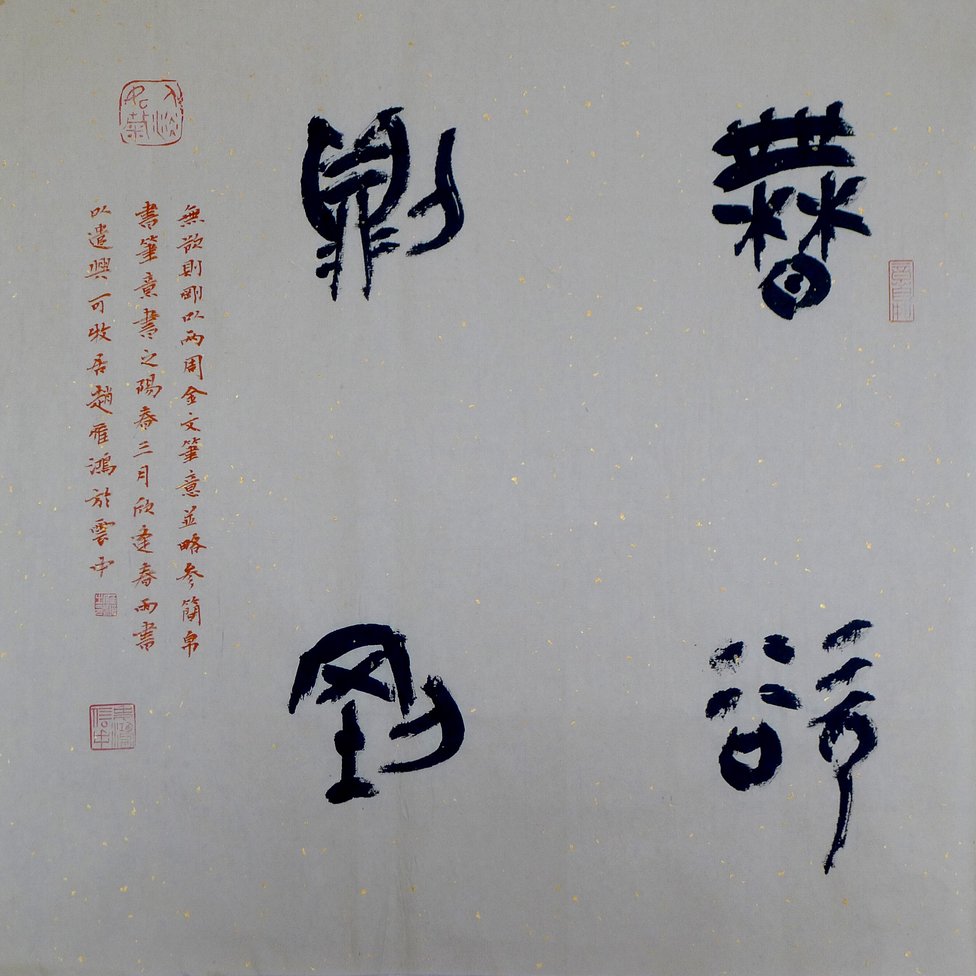 無欲
則剛
無欲則剛以兩周金文筆意並略參簡帛
書筆意書之陽春三月欣逢春雨書
以遣興可牧居趙雁鴻於雲中